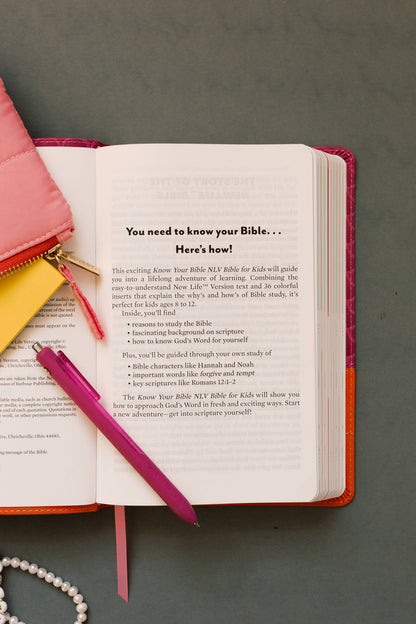 based on
is not quoted.
must appear on
Life Version, copyright ©
are taken from the New
ission of Barbour Publishing.
lable media, such as church bulletins,
media, a complete copyright notice
end of each quotation. Quotations in
work, or other permissions requests,
ve, Uhrichsville, Ohio 44683.
ing message of the Bible.
You need to know your Bible. . .
Here's how!
This exciting Know Your Bible NLV Bible for Kids will guide
you into a lifelong adventure of learning. Combining the
easy-to-understand New Life™ Version text and 36 colorful
inserts that explain the why's and how's of Bible study, it's
perfect for kids ages 8 to 12.
Inside, you'll find
• reasons to study the Bible
• fascinating background on scripture
• how to know God's Word for yourself
Plus, you'll be guided through your own study of
• Bible characters like Hannah and Noah
• important words like forgive and tempt
• key scriptures like Romans 12:1–2
The Know Your Bible NLV Bible for Kids will show you
how to approach God's Word in fresh and exciting ways. Start
a new adventure—get into scripture yourself!